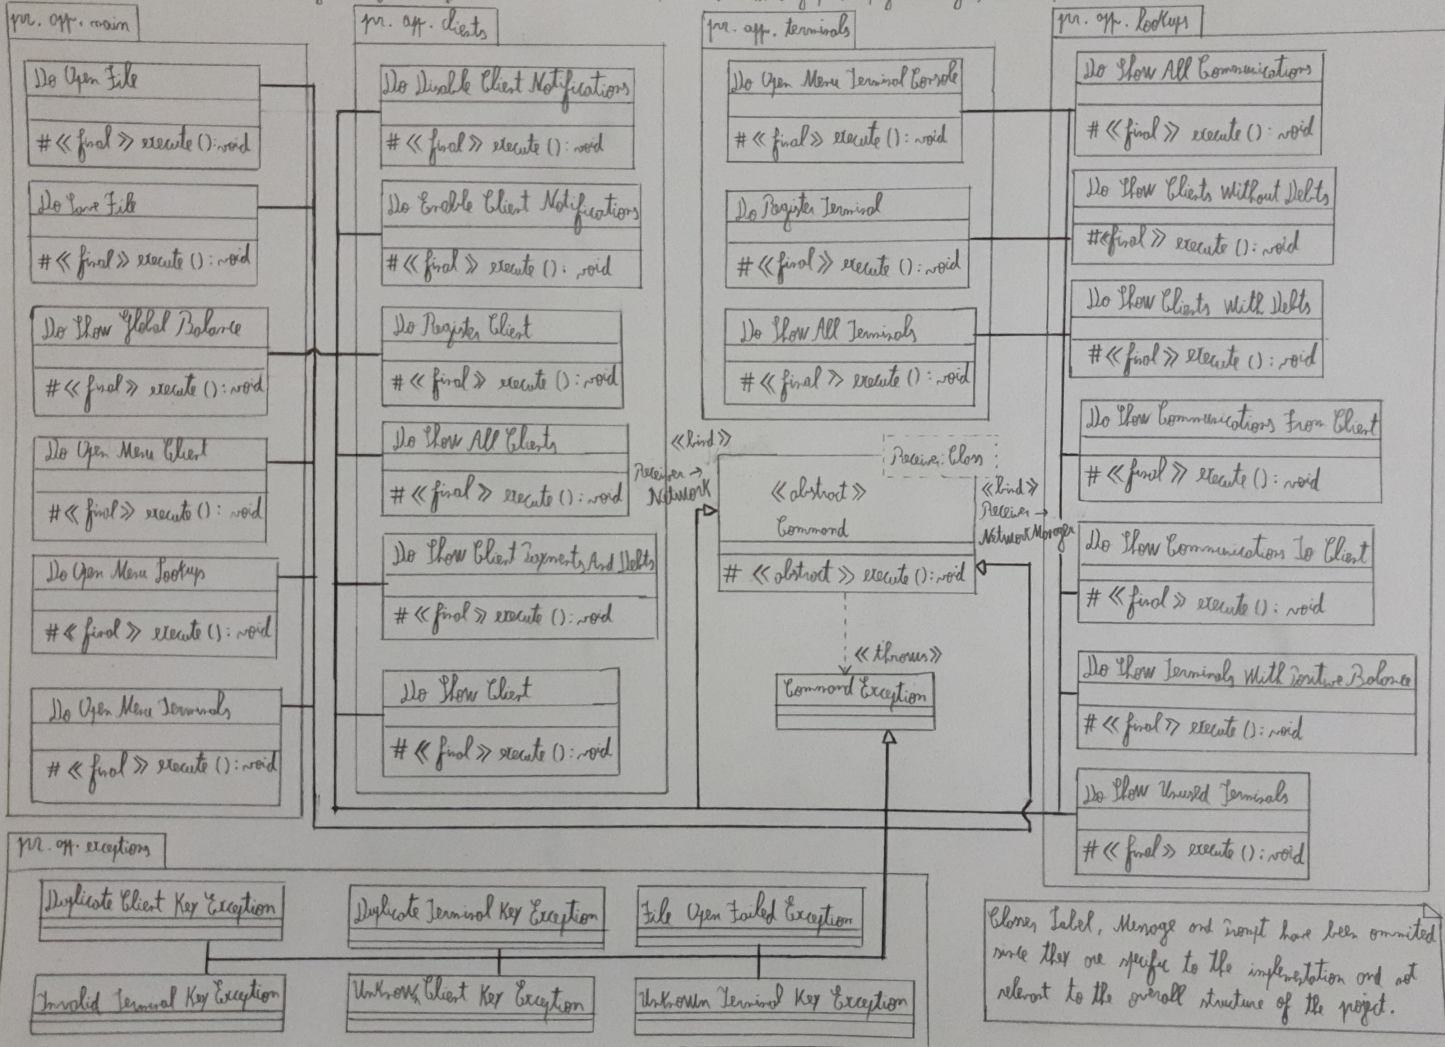 pr.app.main
Do Open File
#<<final>> execute():void
Do Save File
#<<final>> execute():void
Do Show Global Balance
#<<final>> execute():void
Do Open Menu Client
#<<final>> execute():void
Do Open Menu Lookup
#<<final>> execute():void
Do Open Menu Terminals
#<<final>> execute():void
pr.app.clients
Do Disable Client Notifications
#<<final>> execute():void
Do Enable Client Notifications
#<<final>> execute():void
Do Register Client
#<<final>> execute():void
Do Show All Clients
#<<final>> execute():void
Do Show Client Payments And Debts
#<<final>> execute():void
Do Show Client
#<<final>> execute():void
pr.app.terminals
Do Open Menu Terminal Console
#<<final>> execute():void
Do Register Terminal
#<<final>> execute():void
Do Show All Terminals
#<<final>> execute():void
<<bind>>
Receiver →
Network
Receiver:Class
<<abstract>>
Command
# <<abstract>> execute():void
<<bind>>
Receiver →
NetworkManager
<<throws>>
Command Exception
pr.app.lookups
Do Show All Communications
#<<final>> execute():void
Do Show Clients Without Debts
#<<final>> execute():void
Do Show Clients With Debts
#<<final>> execute():void
Do Show Communications From Client
#<<final>> execute():void
Do Show Communications To Client
#<<final>> execute():void
Do Show Terminals With Positive Balance
#<<final>> execute():void
Do Show Unused Terminals
#<<final>> execute():void
pr.app.exceptions
Duplicate Client Key Exception
Duplicate Terminal Key Exception
File Open Failed Exception
Invalid Terminal Key Exception
Unknown Client Key Exception
Unknown Terminal Key Exception
Classes Label, Message and Prompt have been ommited
since they are specific to the implementation and not
relevant to the overall structure of the project.